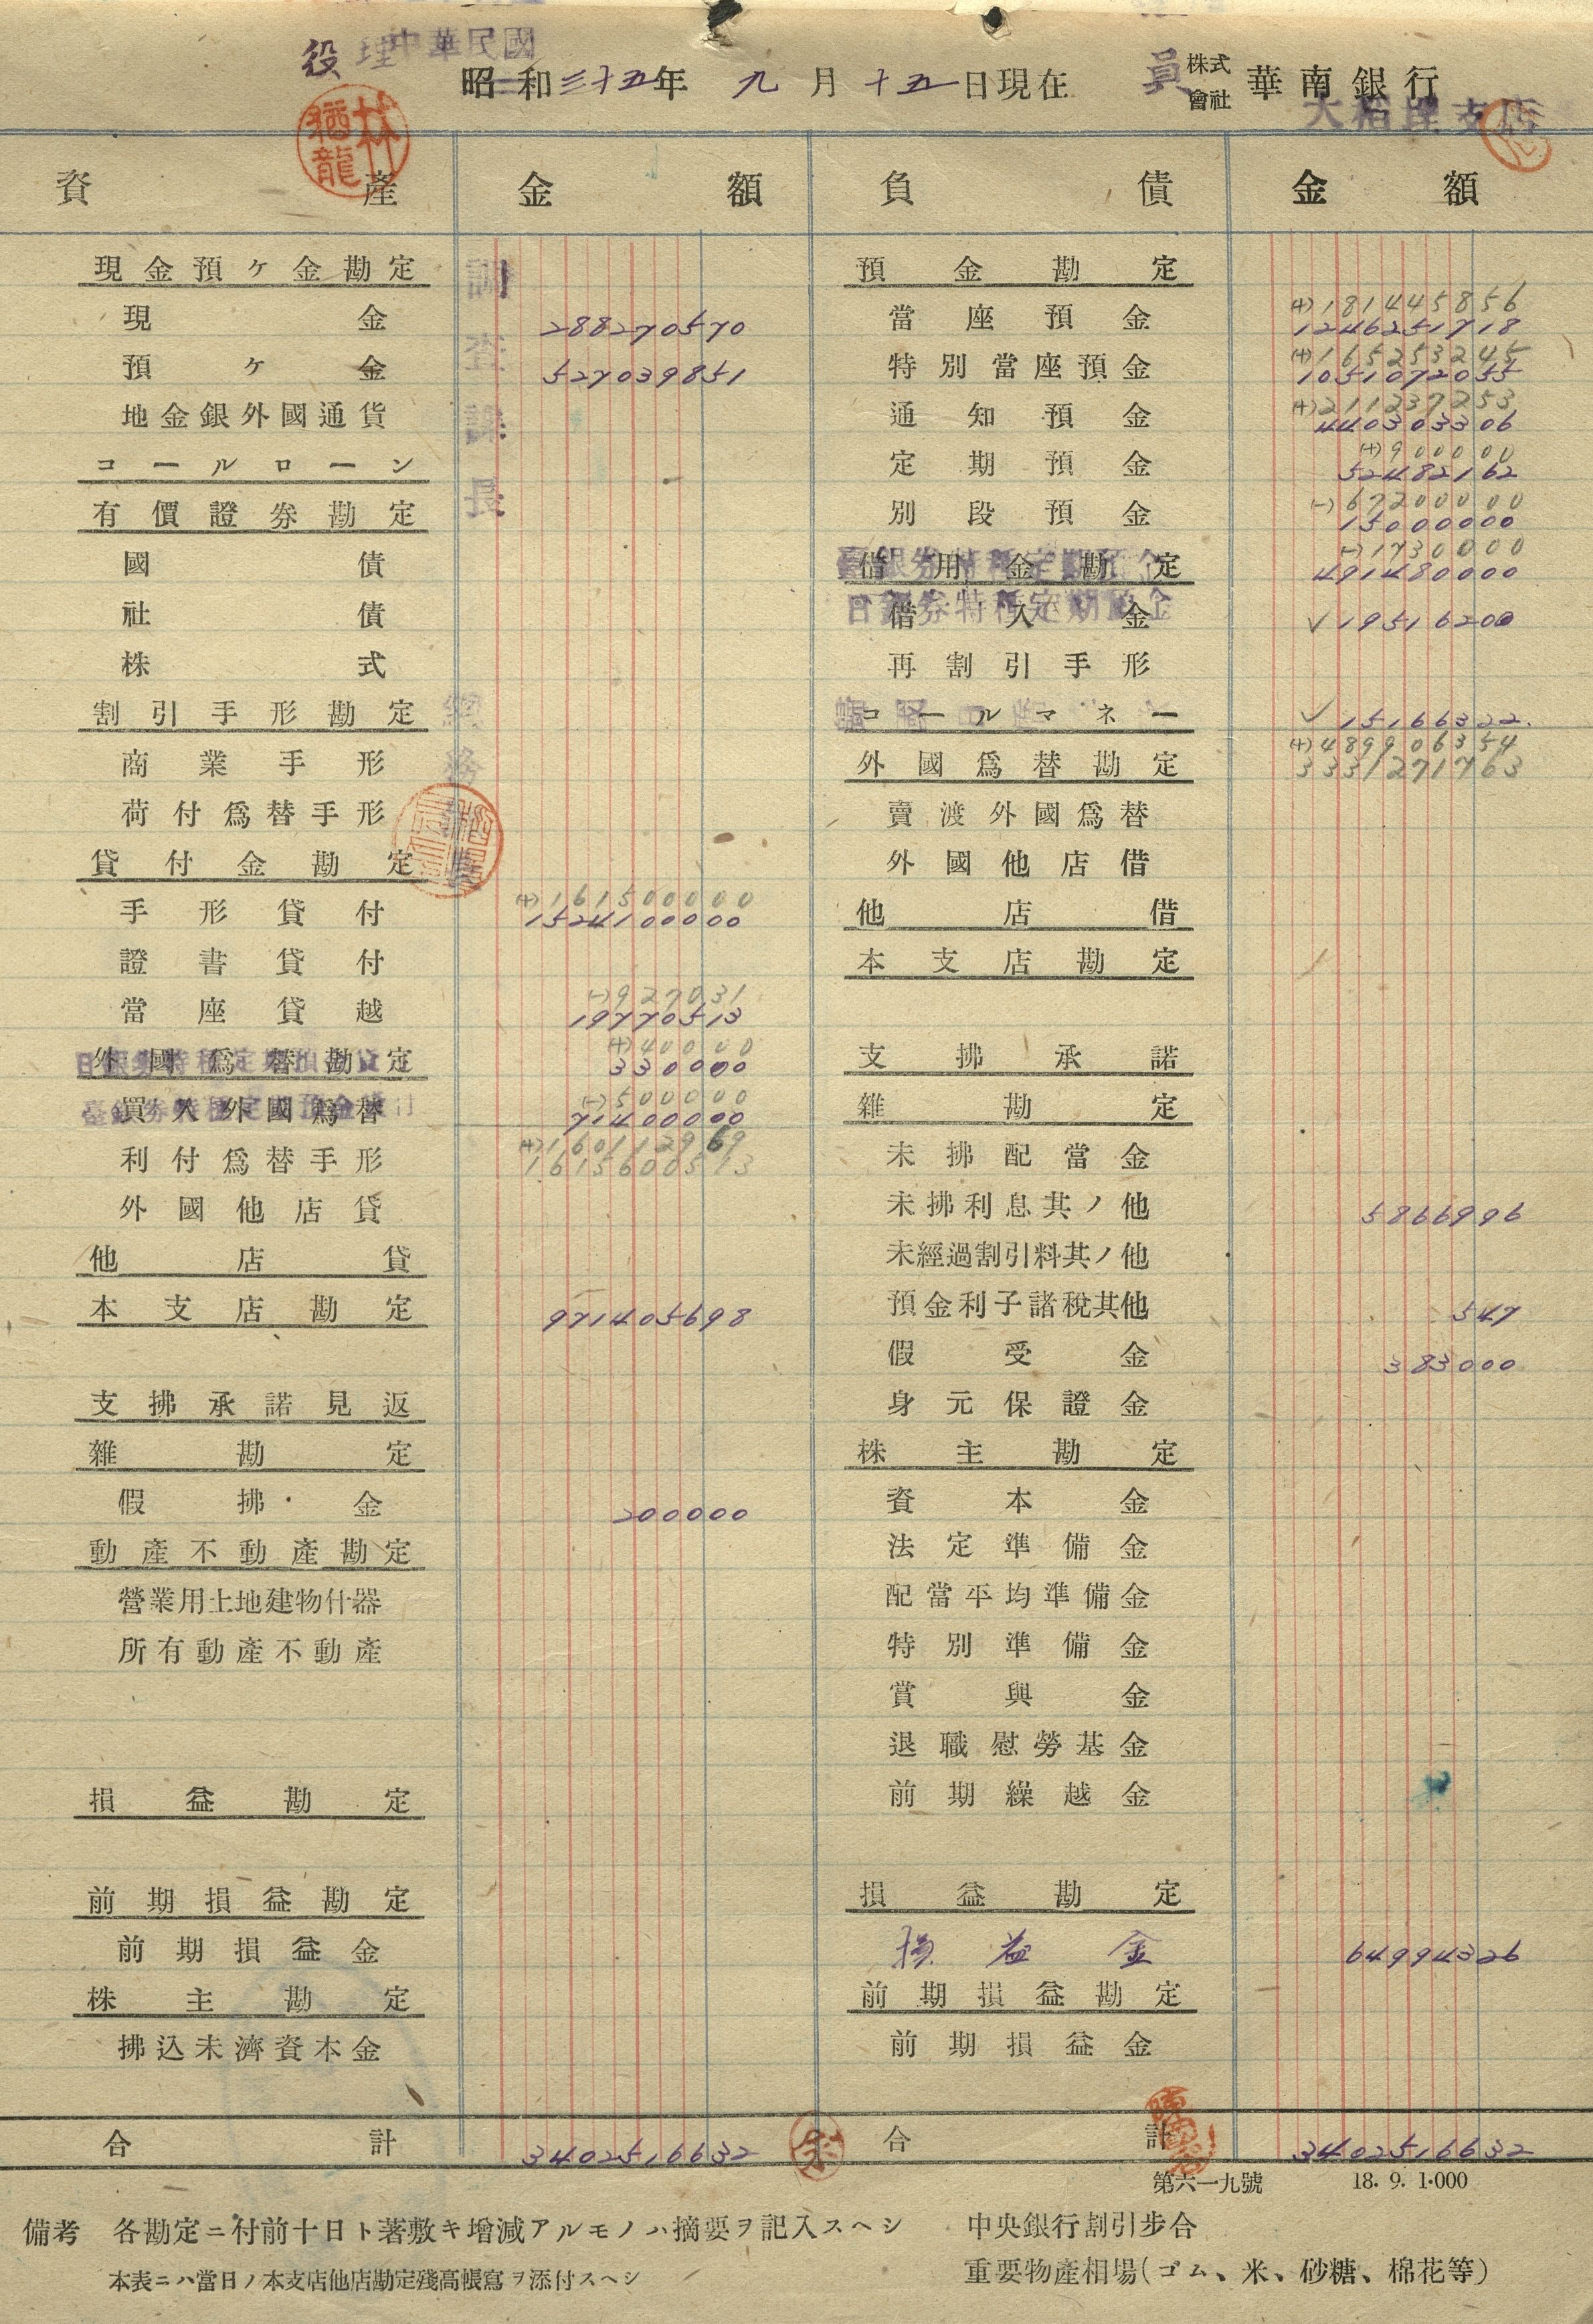 中華民國
役理
昭和三十五年 九月十五日現在
員
株式會社 華南銀行
大稻埕支店
林猶龍
資產 金額 負債 金額
調查課長
總務
現金預ケ金勘定
現金 288270570
預ケ金 527039851
地金銀外國通貨
コールローン
有價證券勘定
國債
社債
株式
割引手形勘定
商業手形
荷付爲替手形
貸付金勘定
手形貸付 (+)161500000
1524100000
證書貸付
當座貸越 (-)927031
19770513
外國爲替勘定 (+)40000
330000
買入外國爲替 (-)500000
71400000
利付爲替手形 (+)160112969
1615600513
外國他店貸
他店貸
本支店勘定 971405698
支拂承諾見返
雜勘定
假拂金 200000
動產不動產勘定
營業用土地建物什器
所有動產不動產
損益勘定
前期損益勘定
前期損益金
株主勘定
拂込未濟資本金
合計 3402516632
預金勘定
當座預金 (+)181445856
1246251718
特別當座預金 (+)165253245
1051072055
通知預金 (+)211237253
440303306
定期預金 (+)900000
52482162
別段預金 (-)67200000
15000000
借用金勘定 (-)1730000
臺銀券特種定期預金
491480000
借入金
日銀券特種定期預金
✓19516200
再割引手形
コールマネー ✓15166322
外國爲替勘定 (+)489906354
3331271763
賣渡外國爲替
外國他店借
他店借
本支店勘定
支拂承諾
雜勘定
未拂配當金
未拂利息其ノ他 5866996
未經過割引料其ノ他
預金利子諸稅其他 547
假受金 383000
身元保證金
株主勘定
資本金
法定準備金
配當平均準備金
特別準備金
賞與金
退職慰勞基金
前期繰越金
損益勘定
損益金 64994326
前期損益勘定
前期損益金
合計 3402516632
第六一九號 18. 9. 1·000
備考 各勘定ニ付前十日ト著敷キ增減アルモノハ摘要ヲ記入スヘシ
本表ニハ當日ノ本支店他店勘定殘高帳寫ヲ添付スヘシ
中央銀行割引步合
重要物產相場(ゴム、米、砂糖、棉花等)